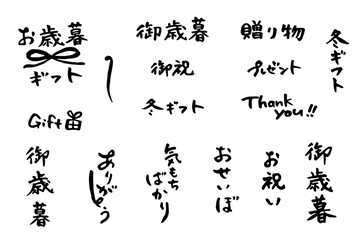 お歳暮
ギフト
御歳暮
贈り物
冬ギフト
御祝
プレゼント
冬ギフト
Thank
you!!
Gift
御歳暮
ありがとう
気もち
ばかり
おせいぼ
お祝い
御歳暮